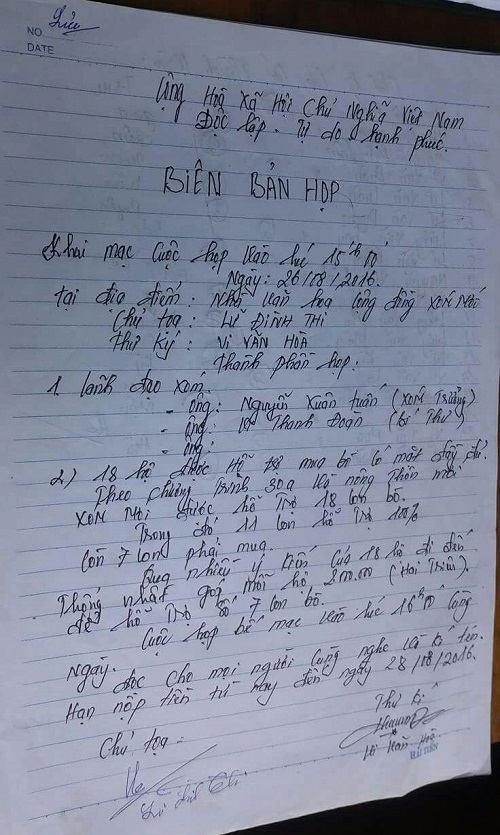 NO
DATE
Cộng Hoà Xã Hội Chủ Nghĩa Việt Nam
Độc lập - Tự do - hạnh phúc.
BIÊN BẢN HỌP
Khai mạc Cuộc họp vào lúc 15h00'
Ngày: 26/08/2016.
tại địa điểm: Nhà văn hoá Cộng đồng xóm
Chủ toạ: LỮ ĐÌNH THI
Thư Ký: VI VĂN HOÀ
Thành phần họp:
1. lãnh đạo xóm.
- ông: Nguyễn Xuân tuấn (xóm Trưởng)
- ông: Thanh Đoạn (Bí Thư)
- ông:
2) 18 hộ được Hỗ trợ mua bò có mặt đầy đủ.
Theo Chương Trình 30a và nông Thôn mới
XÓM được hỗ Trợ 18 Con bò.
Trong đó 11 Con hỗ Trợ 100%
Còn 7 Con phải mua.
Qua nhiều ý Kiến Của 18 hộ đi đến
Thống nhất góp mỗi hộ (Hai Triệu).
để hỗ Trợ Số 7 Con bò.
Cuộc họp bế mạc vào lúc 16h00 Cùng
Ngày.
đọc Cho mọi người Cùng nghe và Kí tên.
Hạn nộp tiền từ nay đến ngày 28/08/2016.
Chủ toạ: Thư Kí
Lữ đình Thi Vi Văn Hoà
HẢI TIẾN